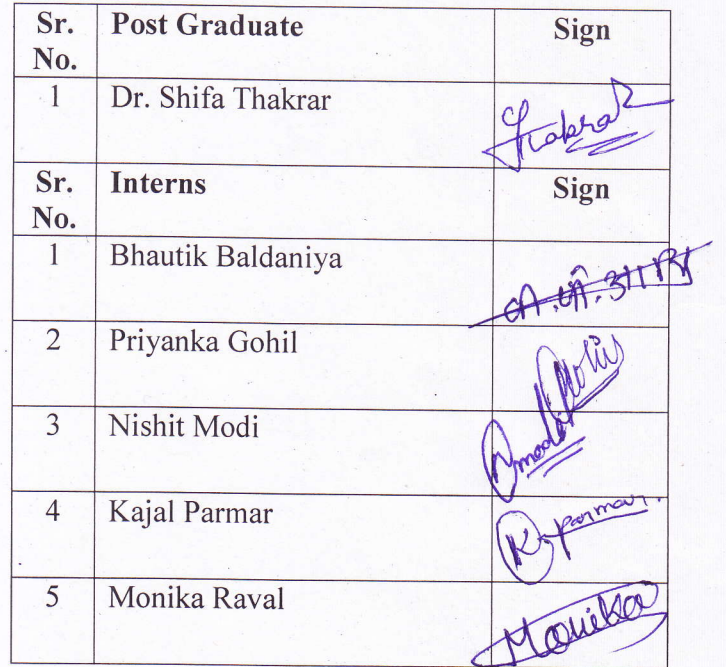 Sr. No. Post Graduate Sign
1 Dr. Shifa Thakrar Thakrar
Sr. No. Interns Sign
1 Bhautik Baldaniya
2 Priyanka Gohil Gohil
3 Nishit Modi Nmodi
4 Kajal Parmar K. parmar.
5 Monika Raval Monika